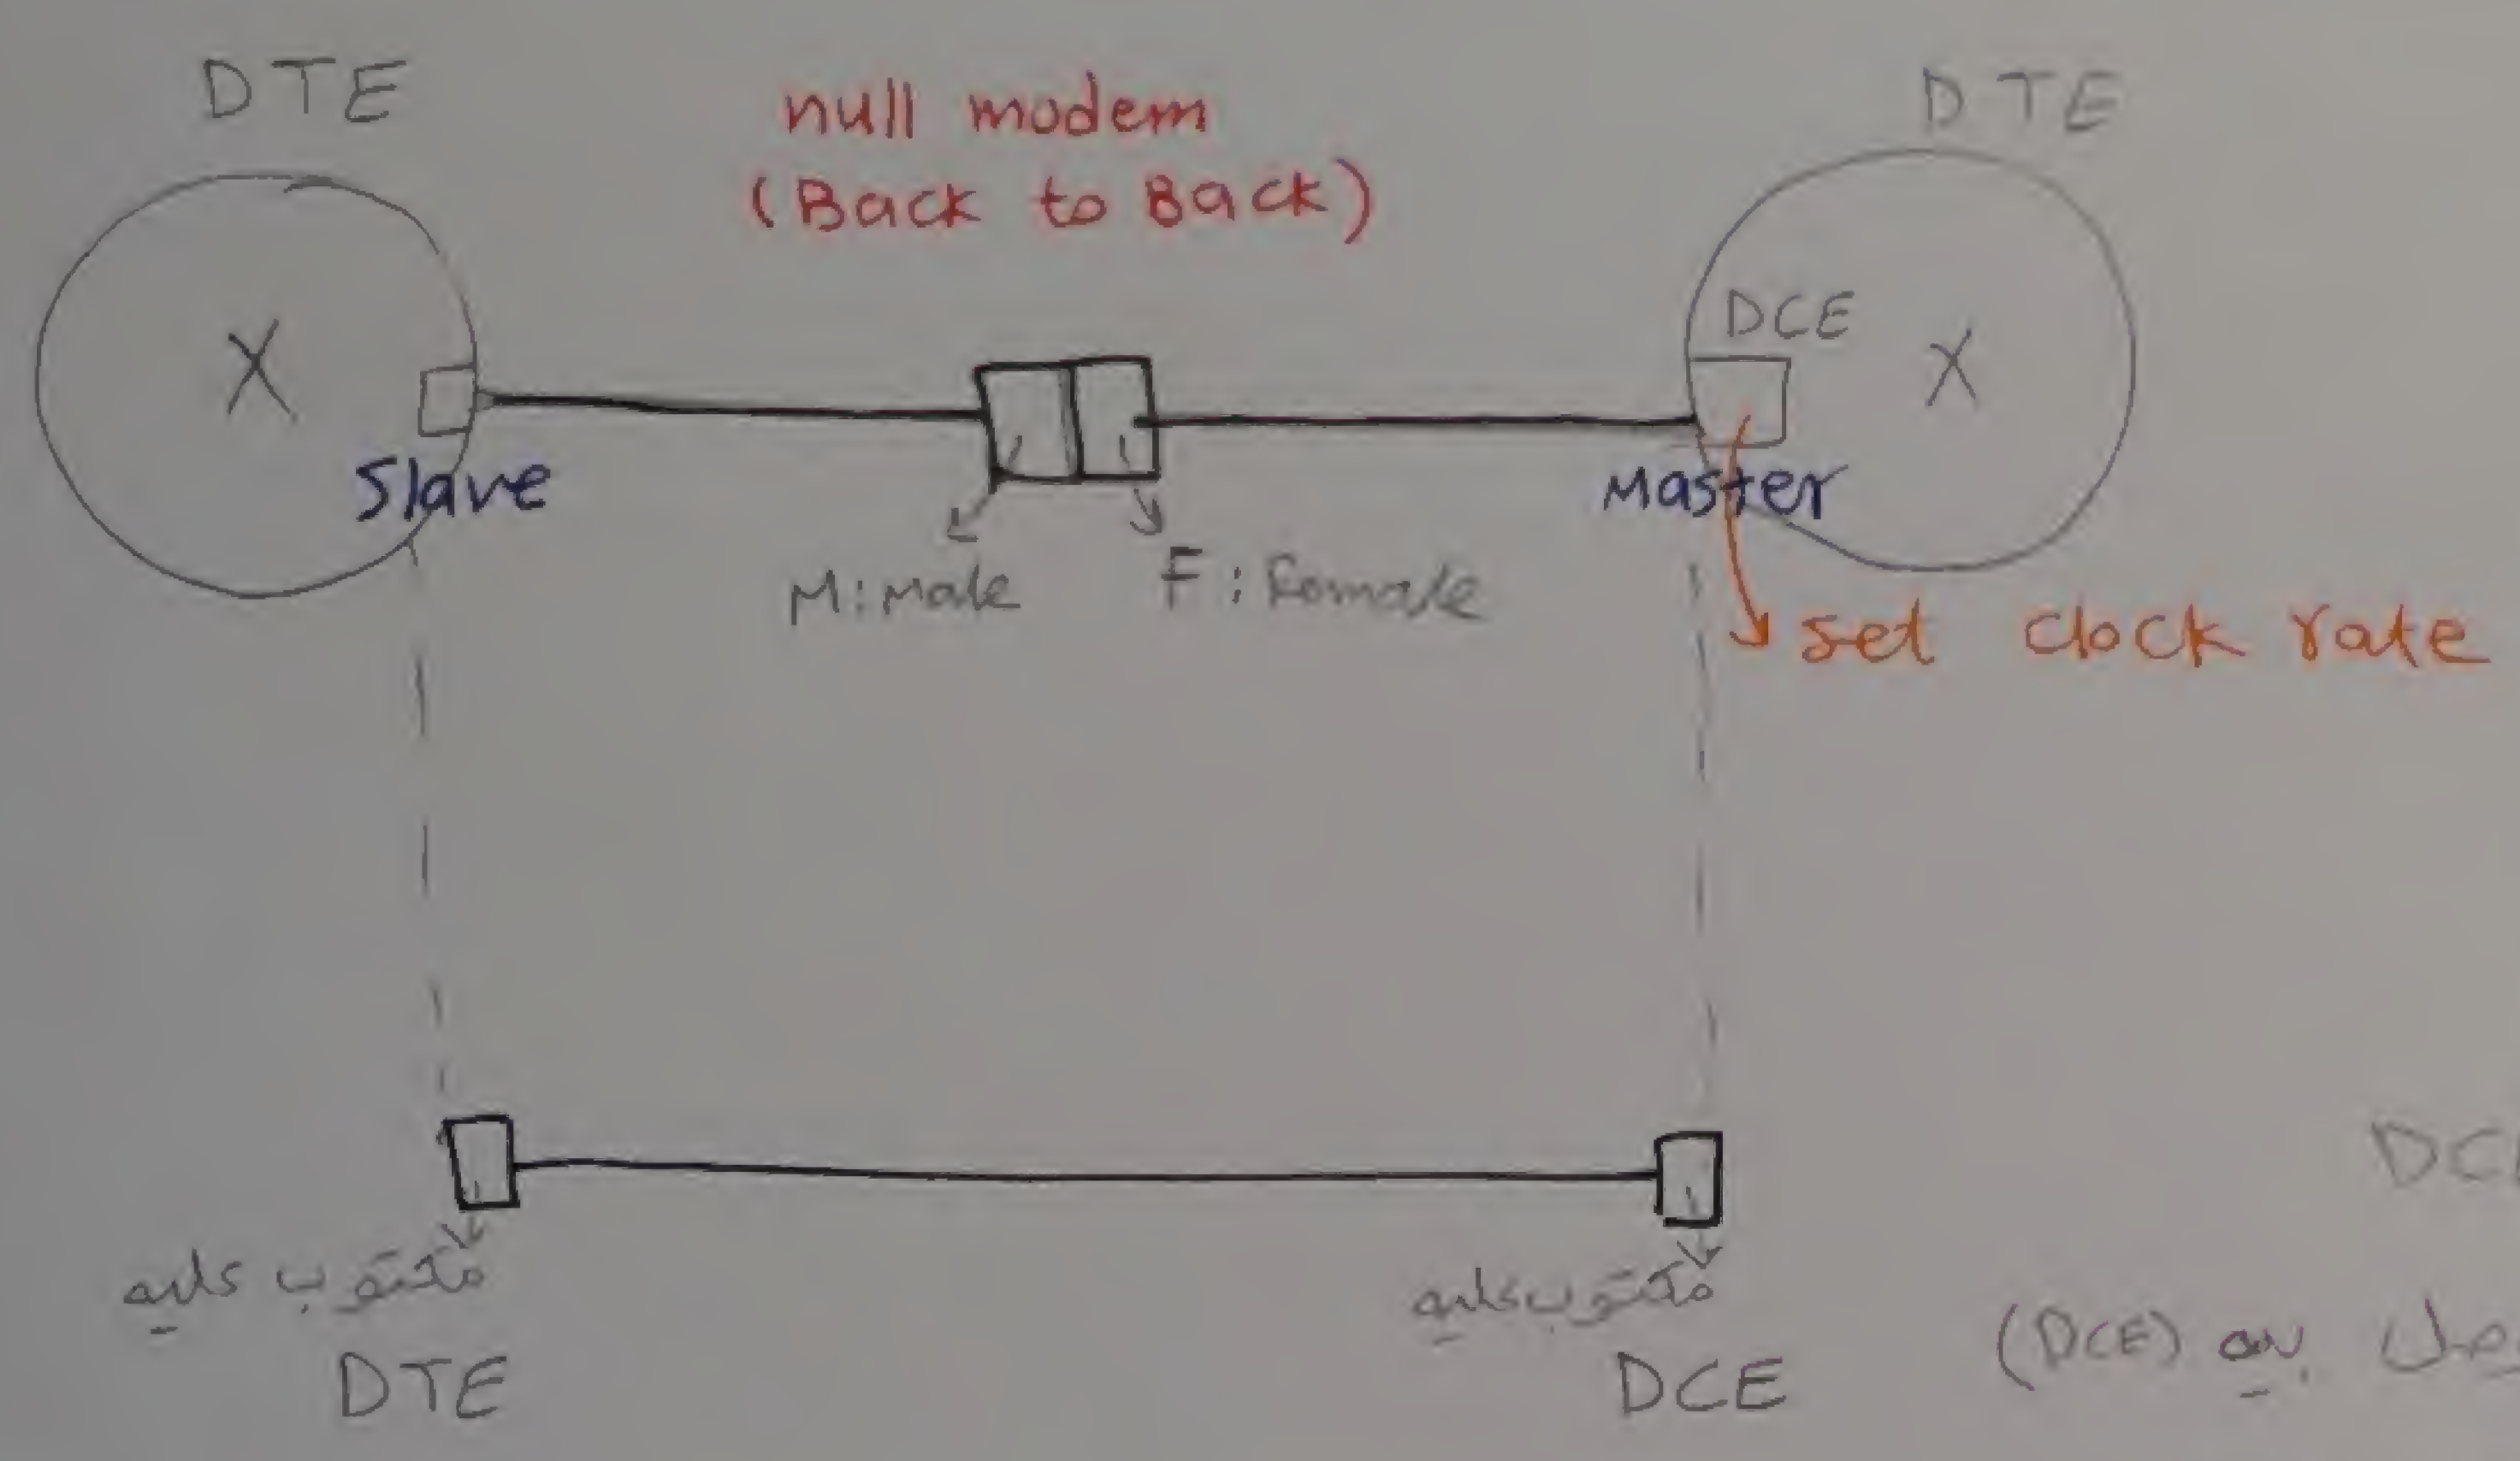 DTE
null modem
(Back to Back)
DTE
X
DCE
X
Slave
Master
M: Male
F: Female
set clock rate
DC
مكتوب عليه
DTE
مكتوب عليه
DCE
به (DCE)